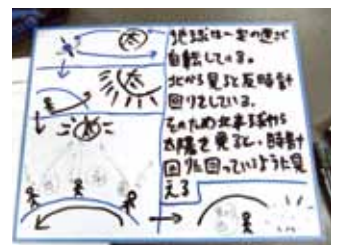 地球は一定の速さで
自転している。
北から見ると反時計
回りをしている。
そのため北半球から
太陽を見ると、時計
回りに回っているように見
える